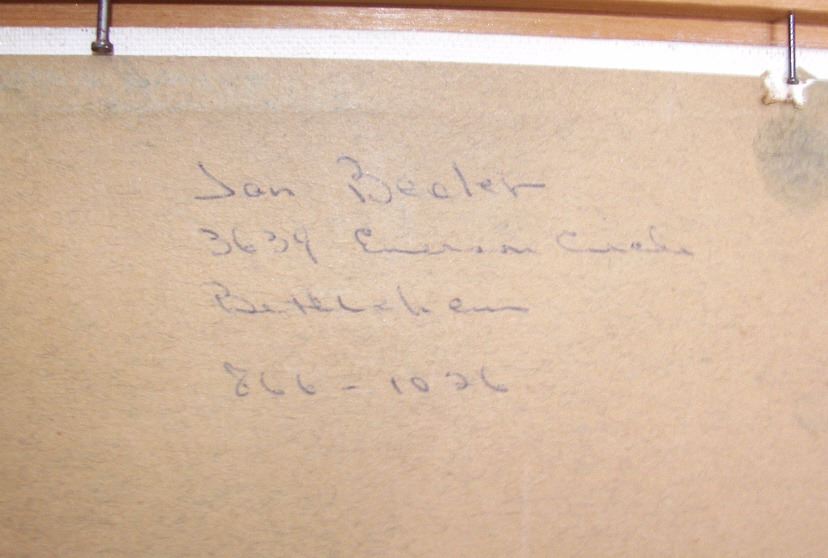 Jan Bealer
3639 Emerson Circle
Bethlehem
866-1026